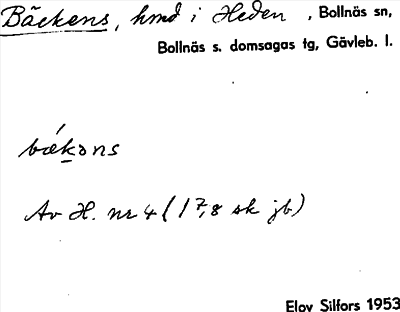 Bäckens, hmd i Heden, Bollnäs sn,
Bollnäs s. domsagas tg, Gävleb. l.
bǽkəns
Av H. nr 4 (17,8 sk jb)
Elov Silfors 1953